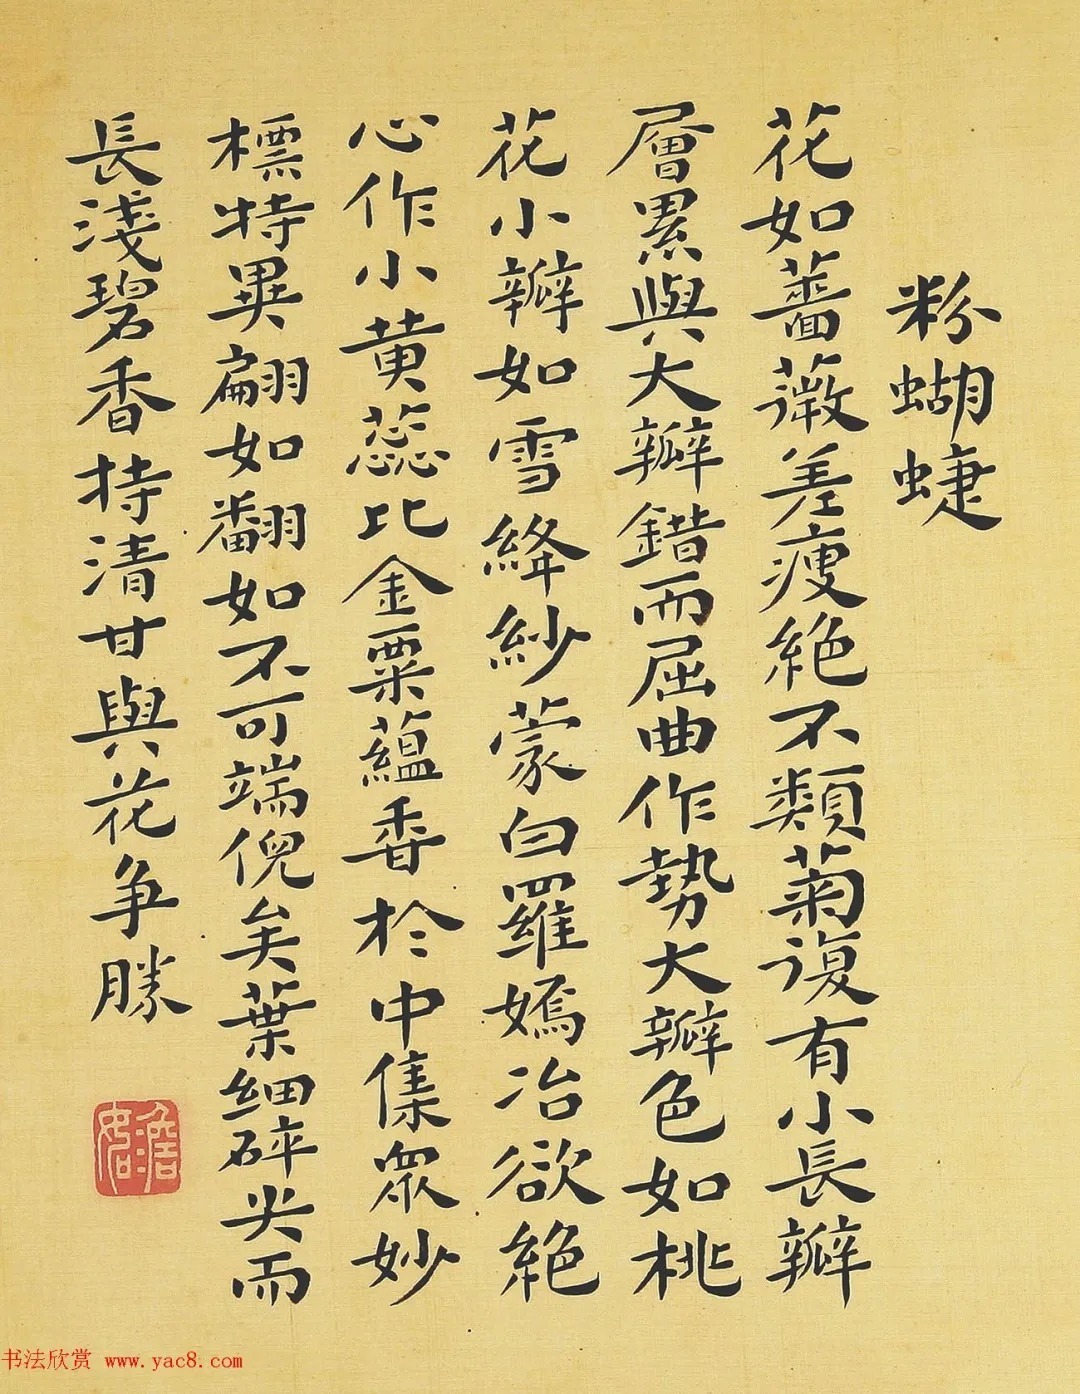 粉蝴蜨
花如薔薇差瘦絶不類菊復有小長瓣
層累與大瓣錯而屈曲作勢大瓣色如桃
花小瓣如雪絳紗蒙白羅嫣冶欲絶
心作小黄蕊比金粟蘊香於中集衆妙
標特異翩如翻如不可端倪矣葉細碎尖而
長淺碧香持清甘與花争勝
書法欣赏 www.yac8.com